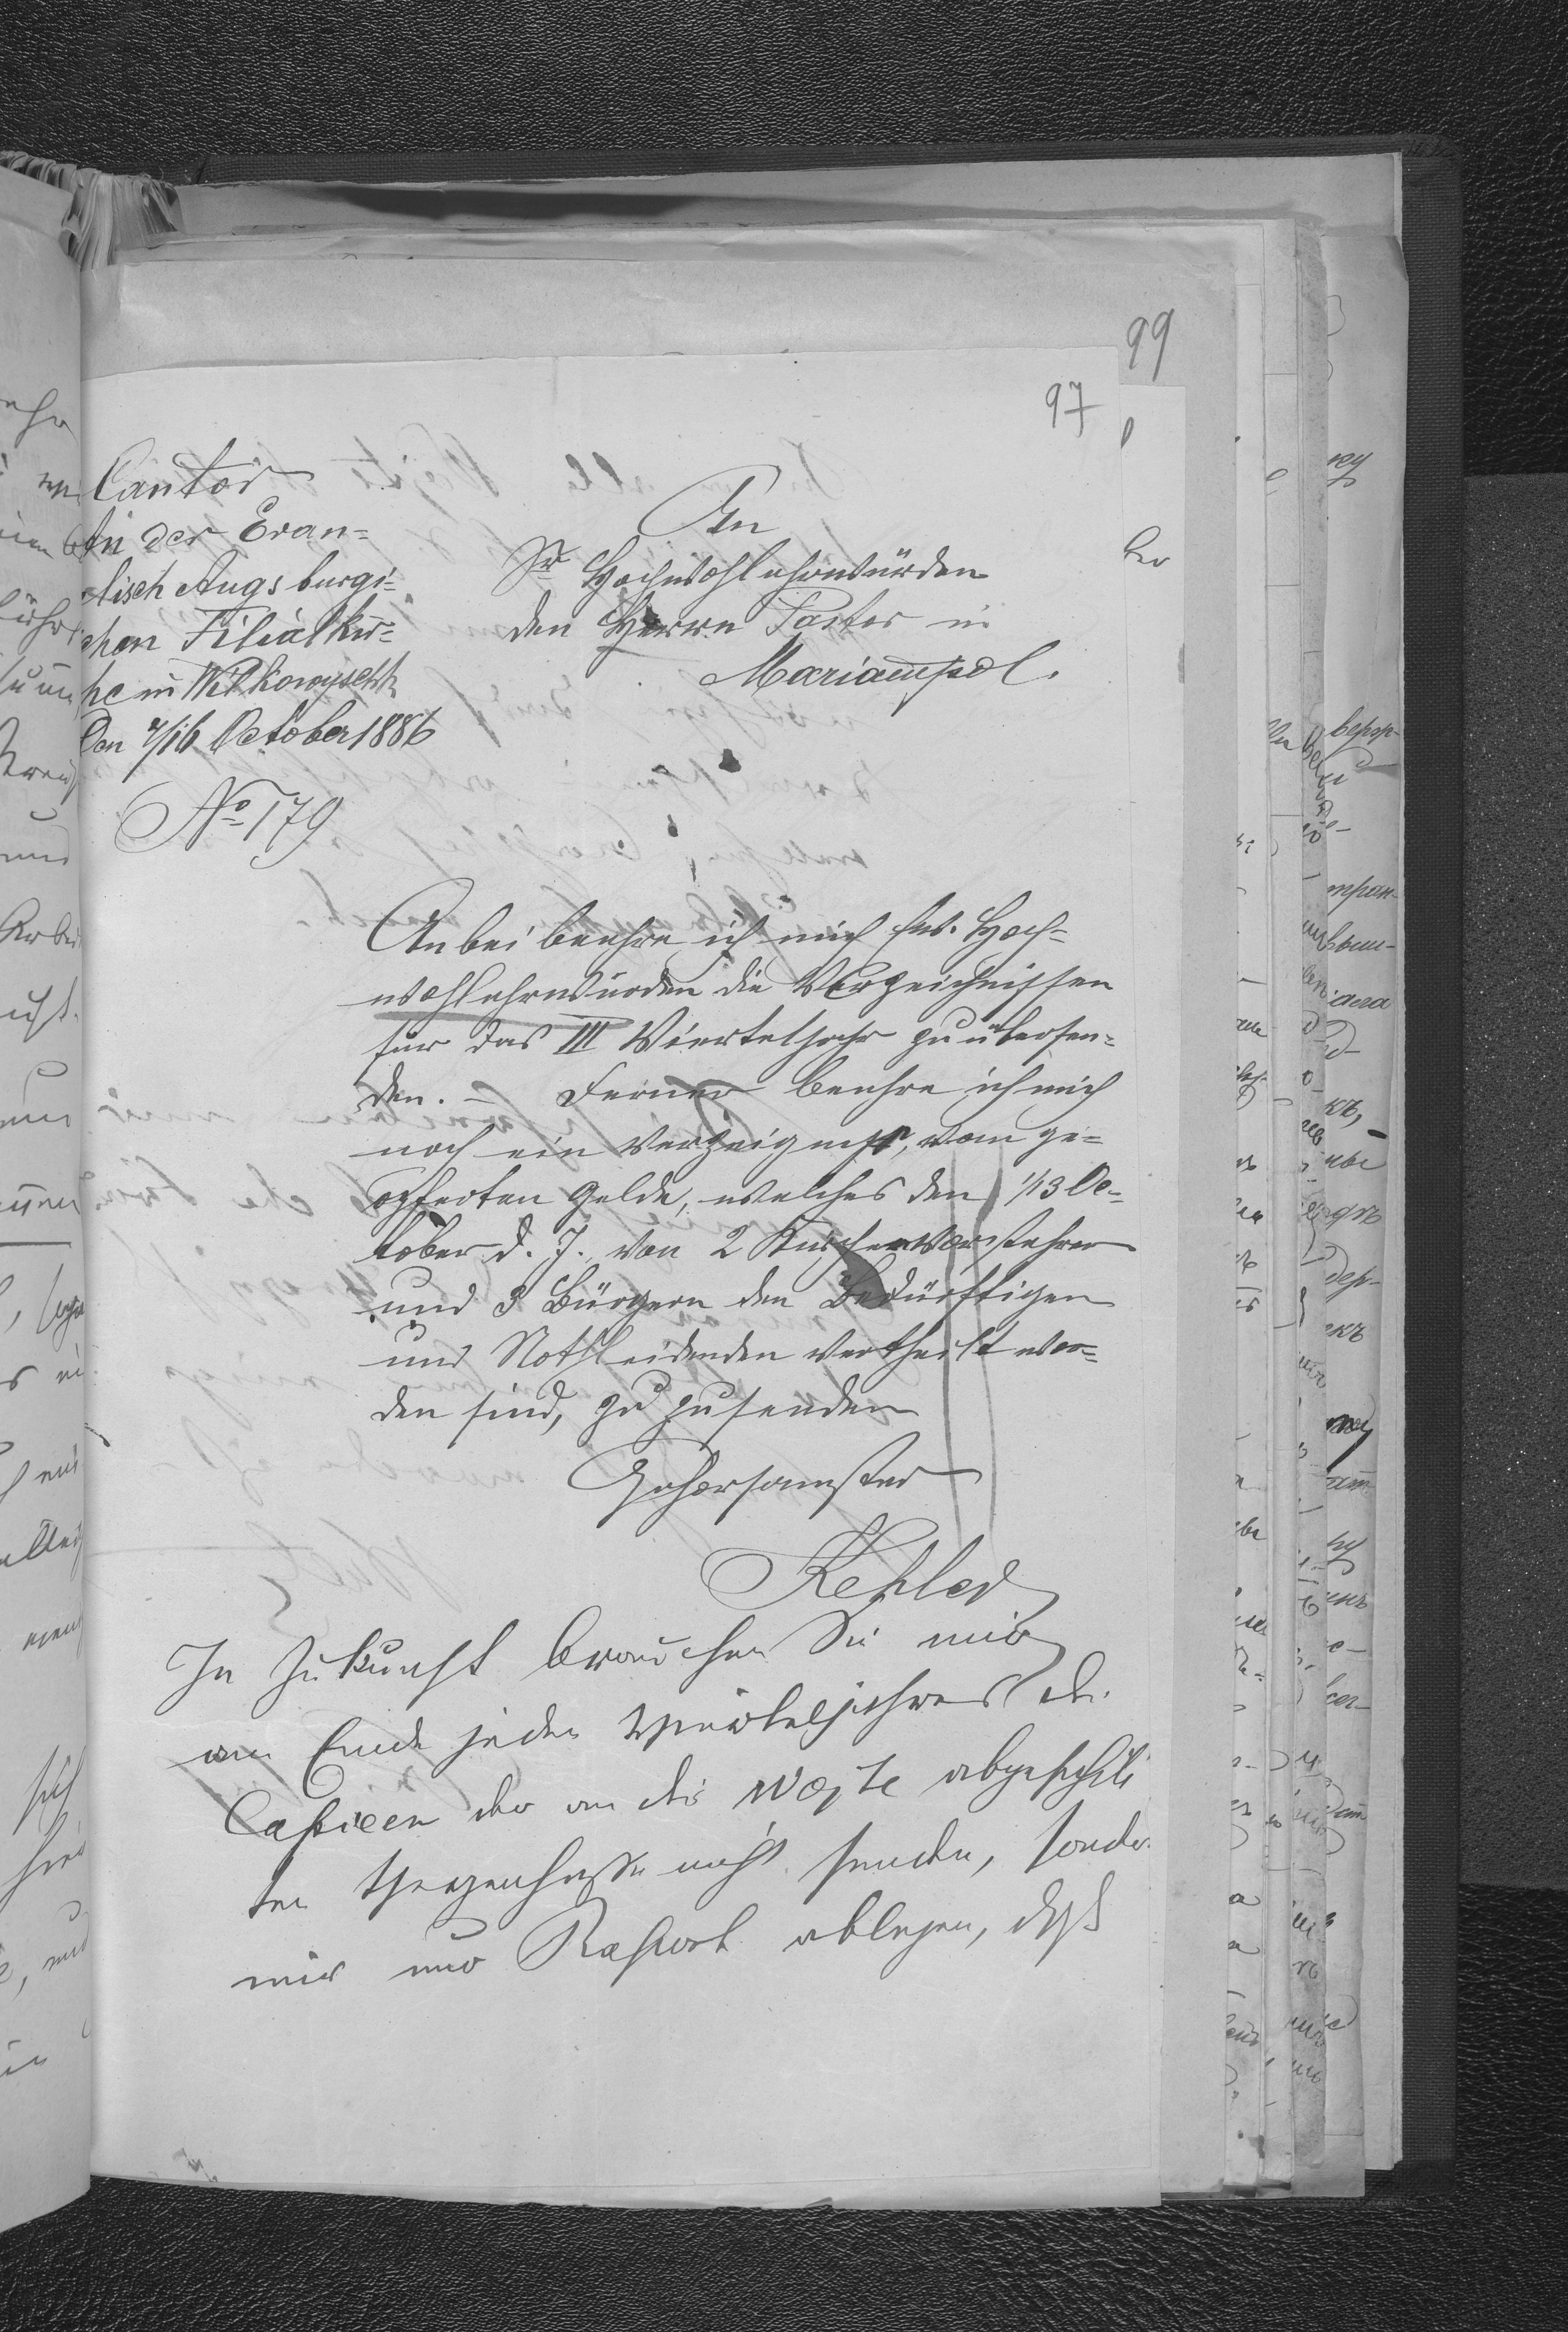 99
97
Cantor
in der Evan-
lisch Augsburgi-
chen Filialkir-
he in Wilkowyschk
Den 4/16 October 1886
No 179
An
Sr Hochwohlehrwürden
den Herrn Pastor in
Mariampol.
Anbei beehre ich mich Ew. Hoch-
wohlehrwürden die Verzeichnissen
für das III Vierteljahr zu übersen-
den. – Ferner beehre ich mich
noch ein Verzeigniss, vom ge-
opferten Gelde, welches den 1/13 Oc-
tober d. J. von 2 Kirchenvorstehern
und 3 Bürgern den Bedürftigen
und Nothleidenden vertheilt wor-
den sind, zu zusenden
Gehorsamster
Kepler
In Zukunft brauchen Sie mir
am Ende jeden Vierteljahres die
Copieen der an die Wojte abgeschick
ten nicht senden, sonder
mir nur Raport ablegen, daß